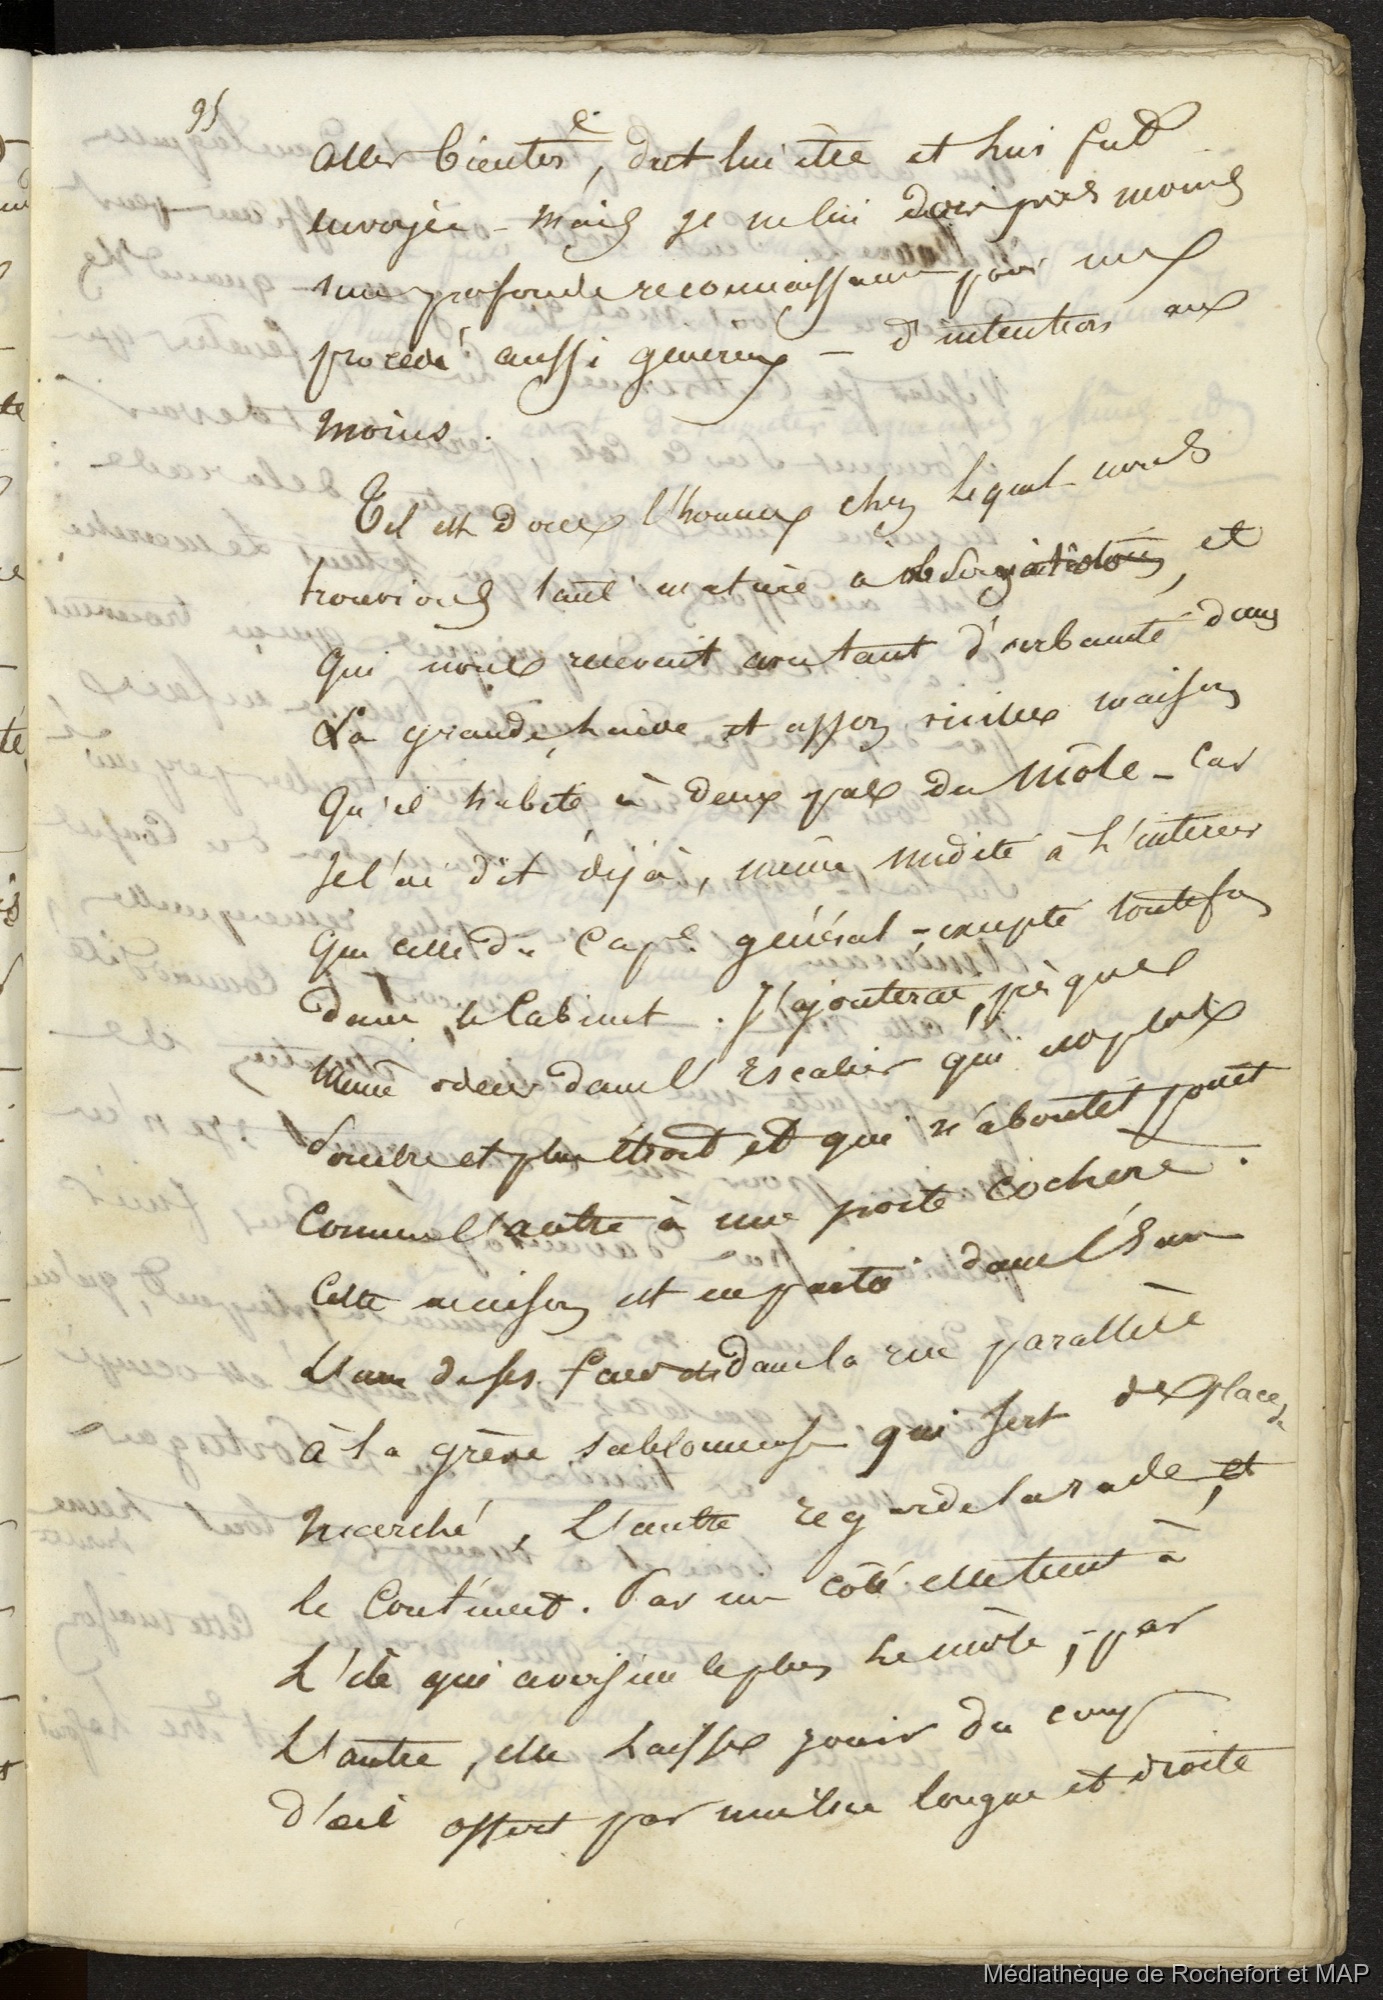 95
aller bientôt, dut lui être et lui fut
envoyée - mais je ne lui dois pas moins
une profonde reconnaissance pour un
procédé aussi genereux - d'intention au
moins.
Tel est donc l'homme chez lequel nous
trouvions tant matière à observations, et
qui nous recevait avec tant d'urbanité dans
La grande, haive et assez vieille maison
qu'il habite à deux pas du Môle - Car
je l'ai dit déjà, même nudité à L'interieur
que celle du Cap.e général - excepté toutefois
dans le Cabinet. J'ajouterai, presque
même odeur dans l'Escalier qui est plus
sombre et plus étroit et qui n'aboutit point
Comme l'autre à une porte Cochère.
Cette maison est en partie dans l'
L'une de ses faces dans la rue parallèle
à la grève sablonneuse qui sert de place de
marché, L'autre regarde la rade, et
le Continent. Par un côté elle tient à
L' qui avoisine le plus Le môle, par
L'autre, elle Laisse jouir du coup
d'œil offert par une rue longue et droite
Médiathèque de Rochefort et MAP